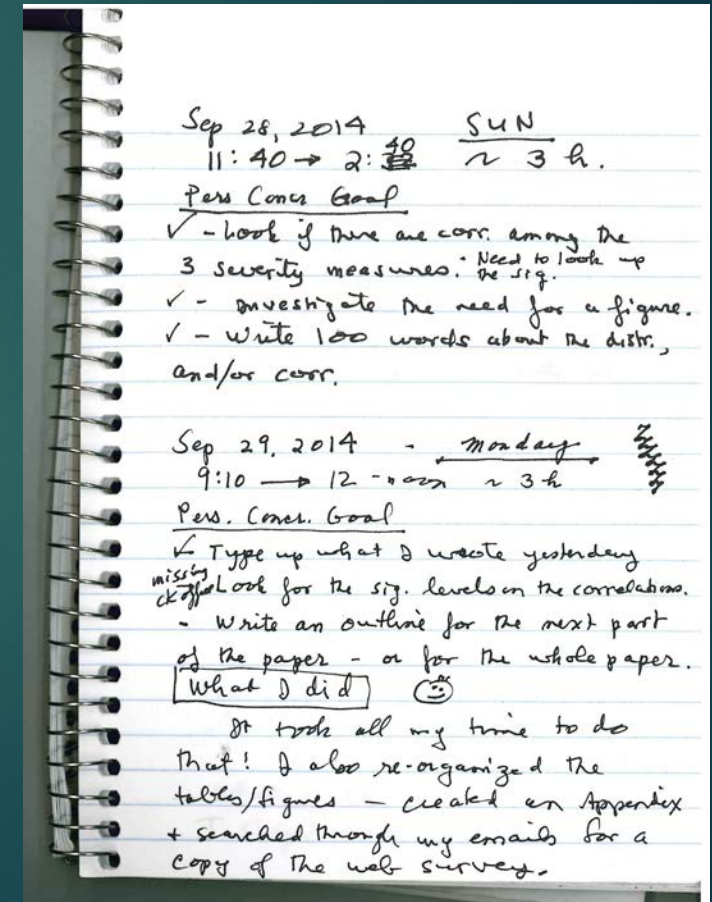 Sep 28, 2014 SUN
11:40 → 2:40 ~ 3 h.
Pers Concr Goal
✓ - Look if there are corr. among the
3 severity measures. · Need to look up the sig.
✓ - Investigate the need for a figure.
✓ - Write 100 words about the distr.,
and/or corr.
Sep 29, 2014 - Monday
9:10 → 12 - noon ~ 3 h
Pers. Concr. Goal
✓ Type up what I wrote yesterday
missing ck off Look for the sig. levels on the correlations.
- Write an outline for the next part
of the paper - or for the whole paper.
What I did
It took all my time to do
that! I also re-organized the
tables/figures — created an Appendix
+ searched through my emails for a
copy of the web survey.